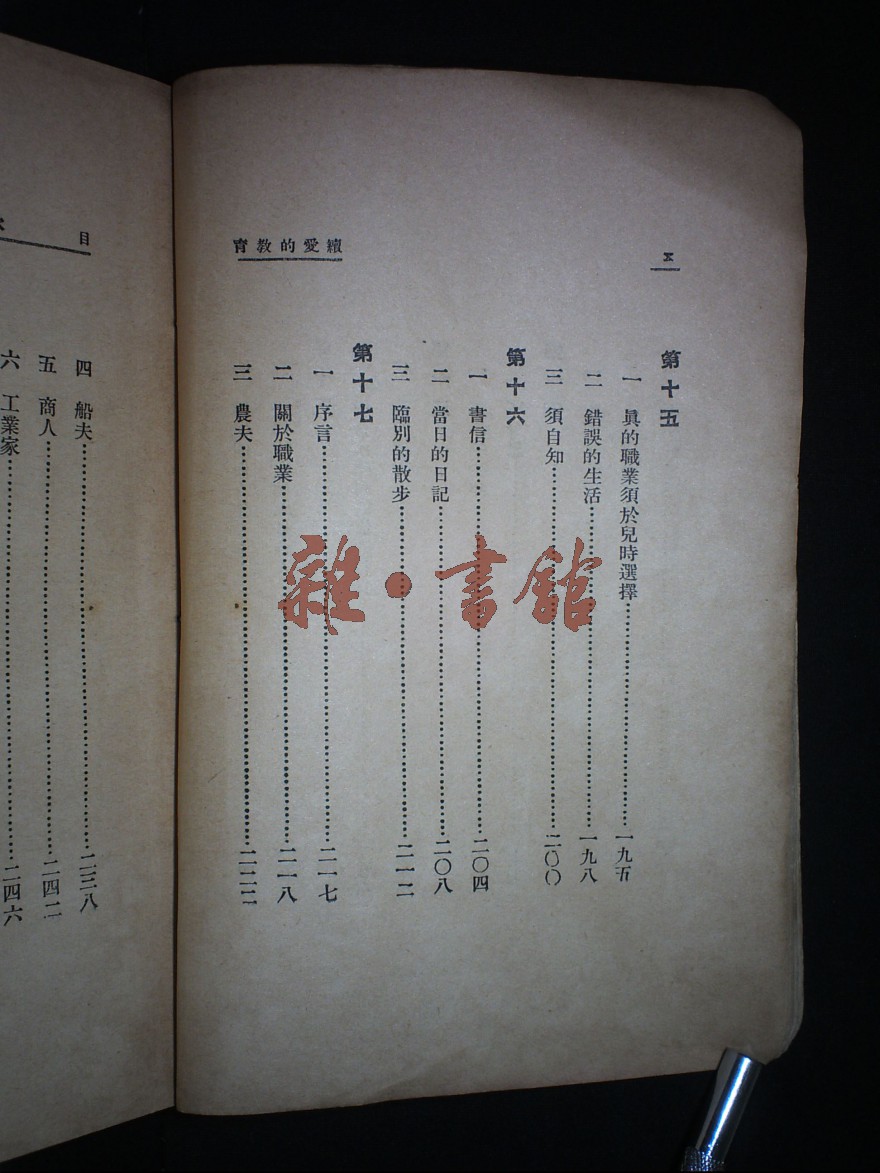 續愛的教育
X
第十五
一 眞的職業須於兒時選擇…………一九五
二 錯誤的生活…………一九八
三 須自知…………二〇〇
第十六
一 書信…………二〇四
二 當日的日記…………二〇八
三 臨別的散步…………二一二
第十七
一 序言…………二一七
二 關於職業…………二一八
三 農夫…………二二二
目
四 船夫…………二三八
五 商人…………二四二
六 工業家…………二四六
雜·書館